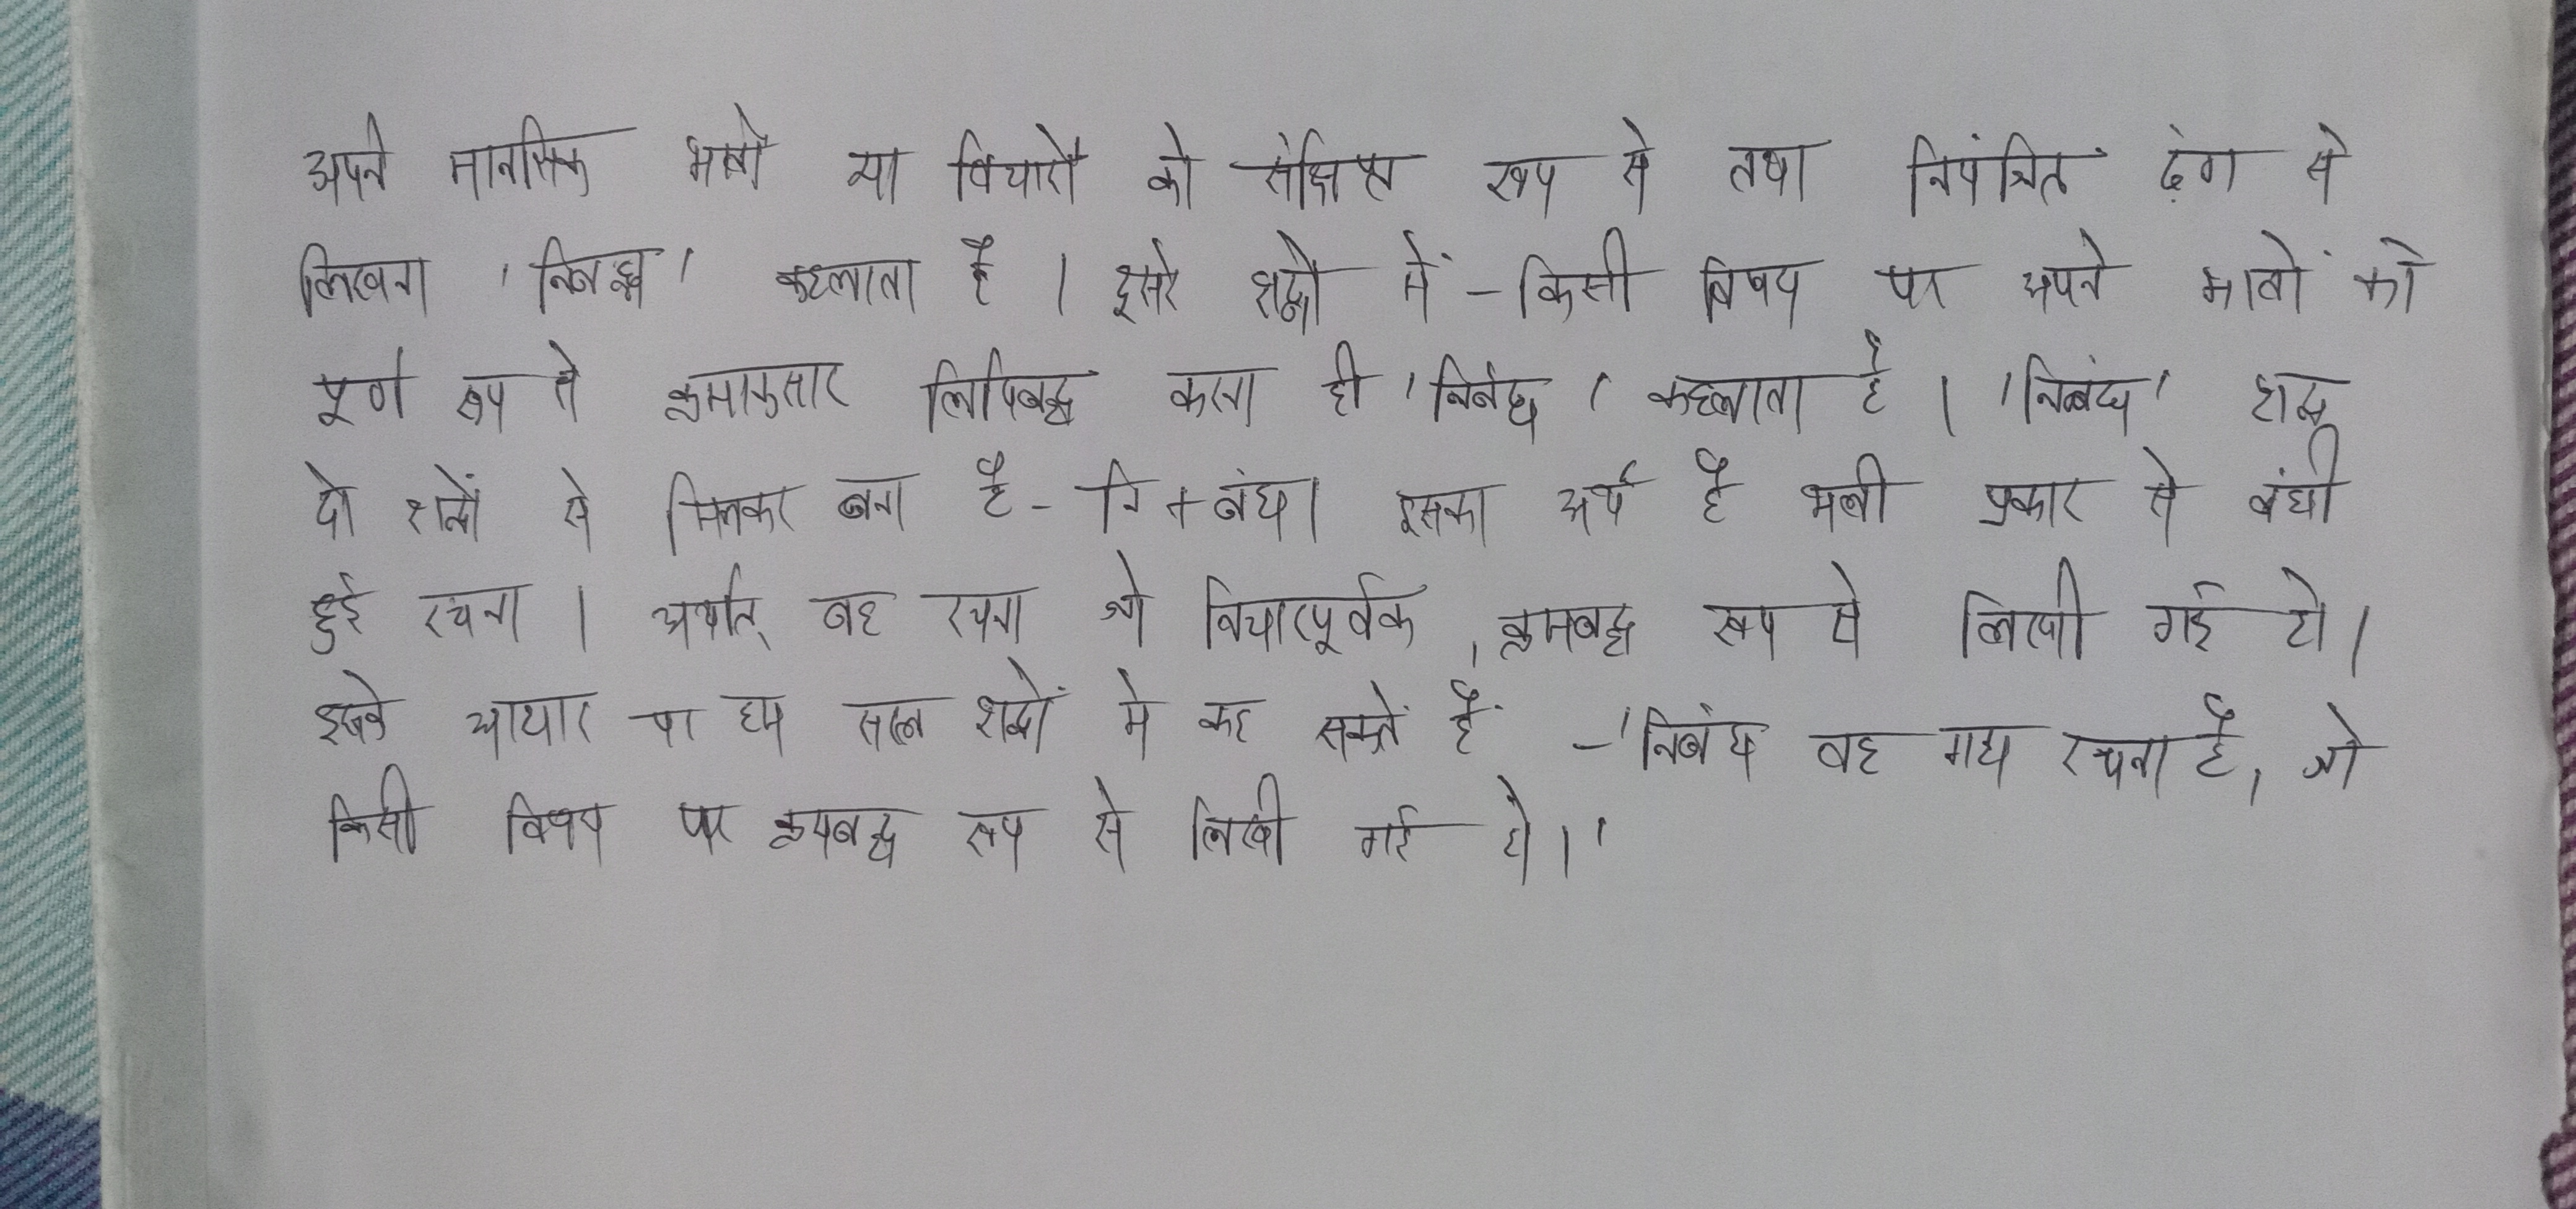 अपने मानसिक भावों या विचारों को संक्षिप्त रूप से तथा नियंत्रित ढंग से
लिखना 'निबन्ध' कहलाता है । दूसरे शब्दों में - किसी विषय पर अपने भावों को
पूर्ण रूप से क्रमानुसार लिपिबद्ध करना ही 'निबंध' कहलाता है । 'निबंध' शब्द
दो शब्दों से मिलकर बना है - नि + बंध। इसका अर्थ है भली प्रकार से बंधी
हुई रचना । अर्थात् वह रचना जो विचारपूर्वक , क्रमबद्ध रूप से लिखी गई हो।
इसके आधार पर हम सरल शब्दों मे कह सकतें हैं - 'निबंध वह गद्य रचना है, जो
किसी विषय पर क्रमबद्ध रूप से लिखी गई हो।'